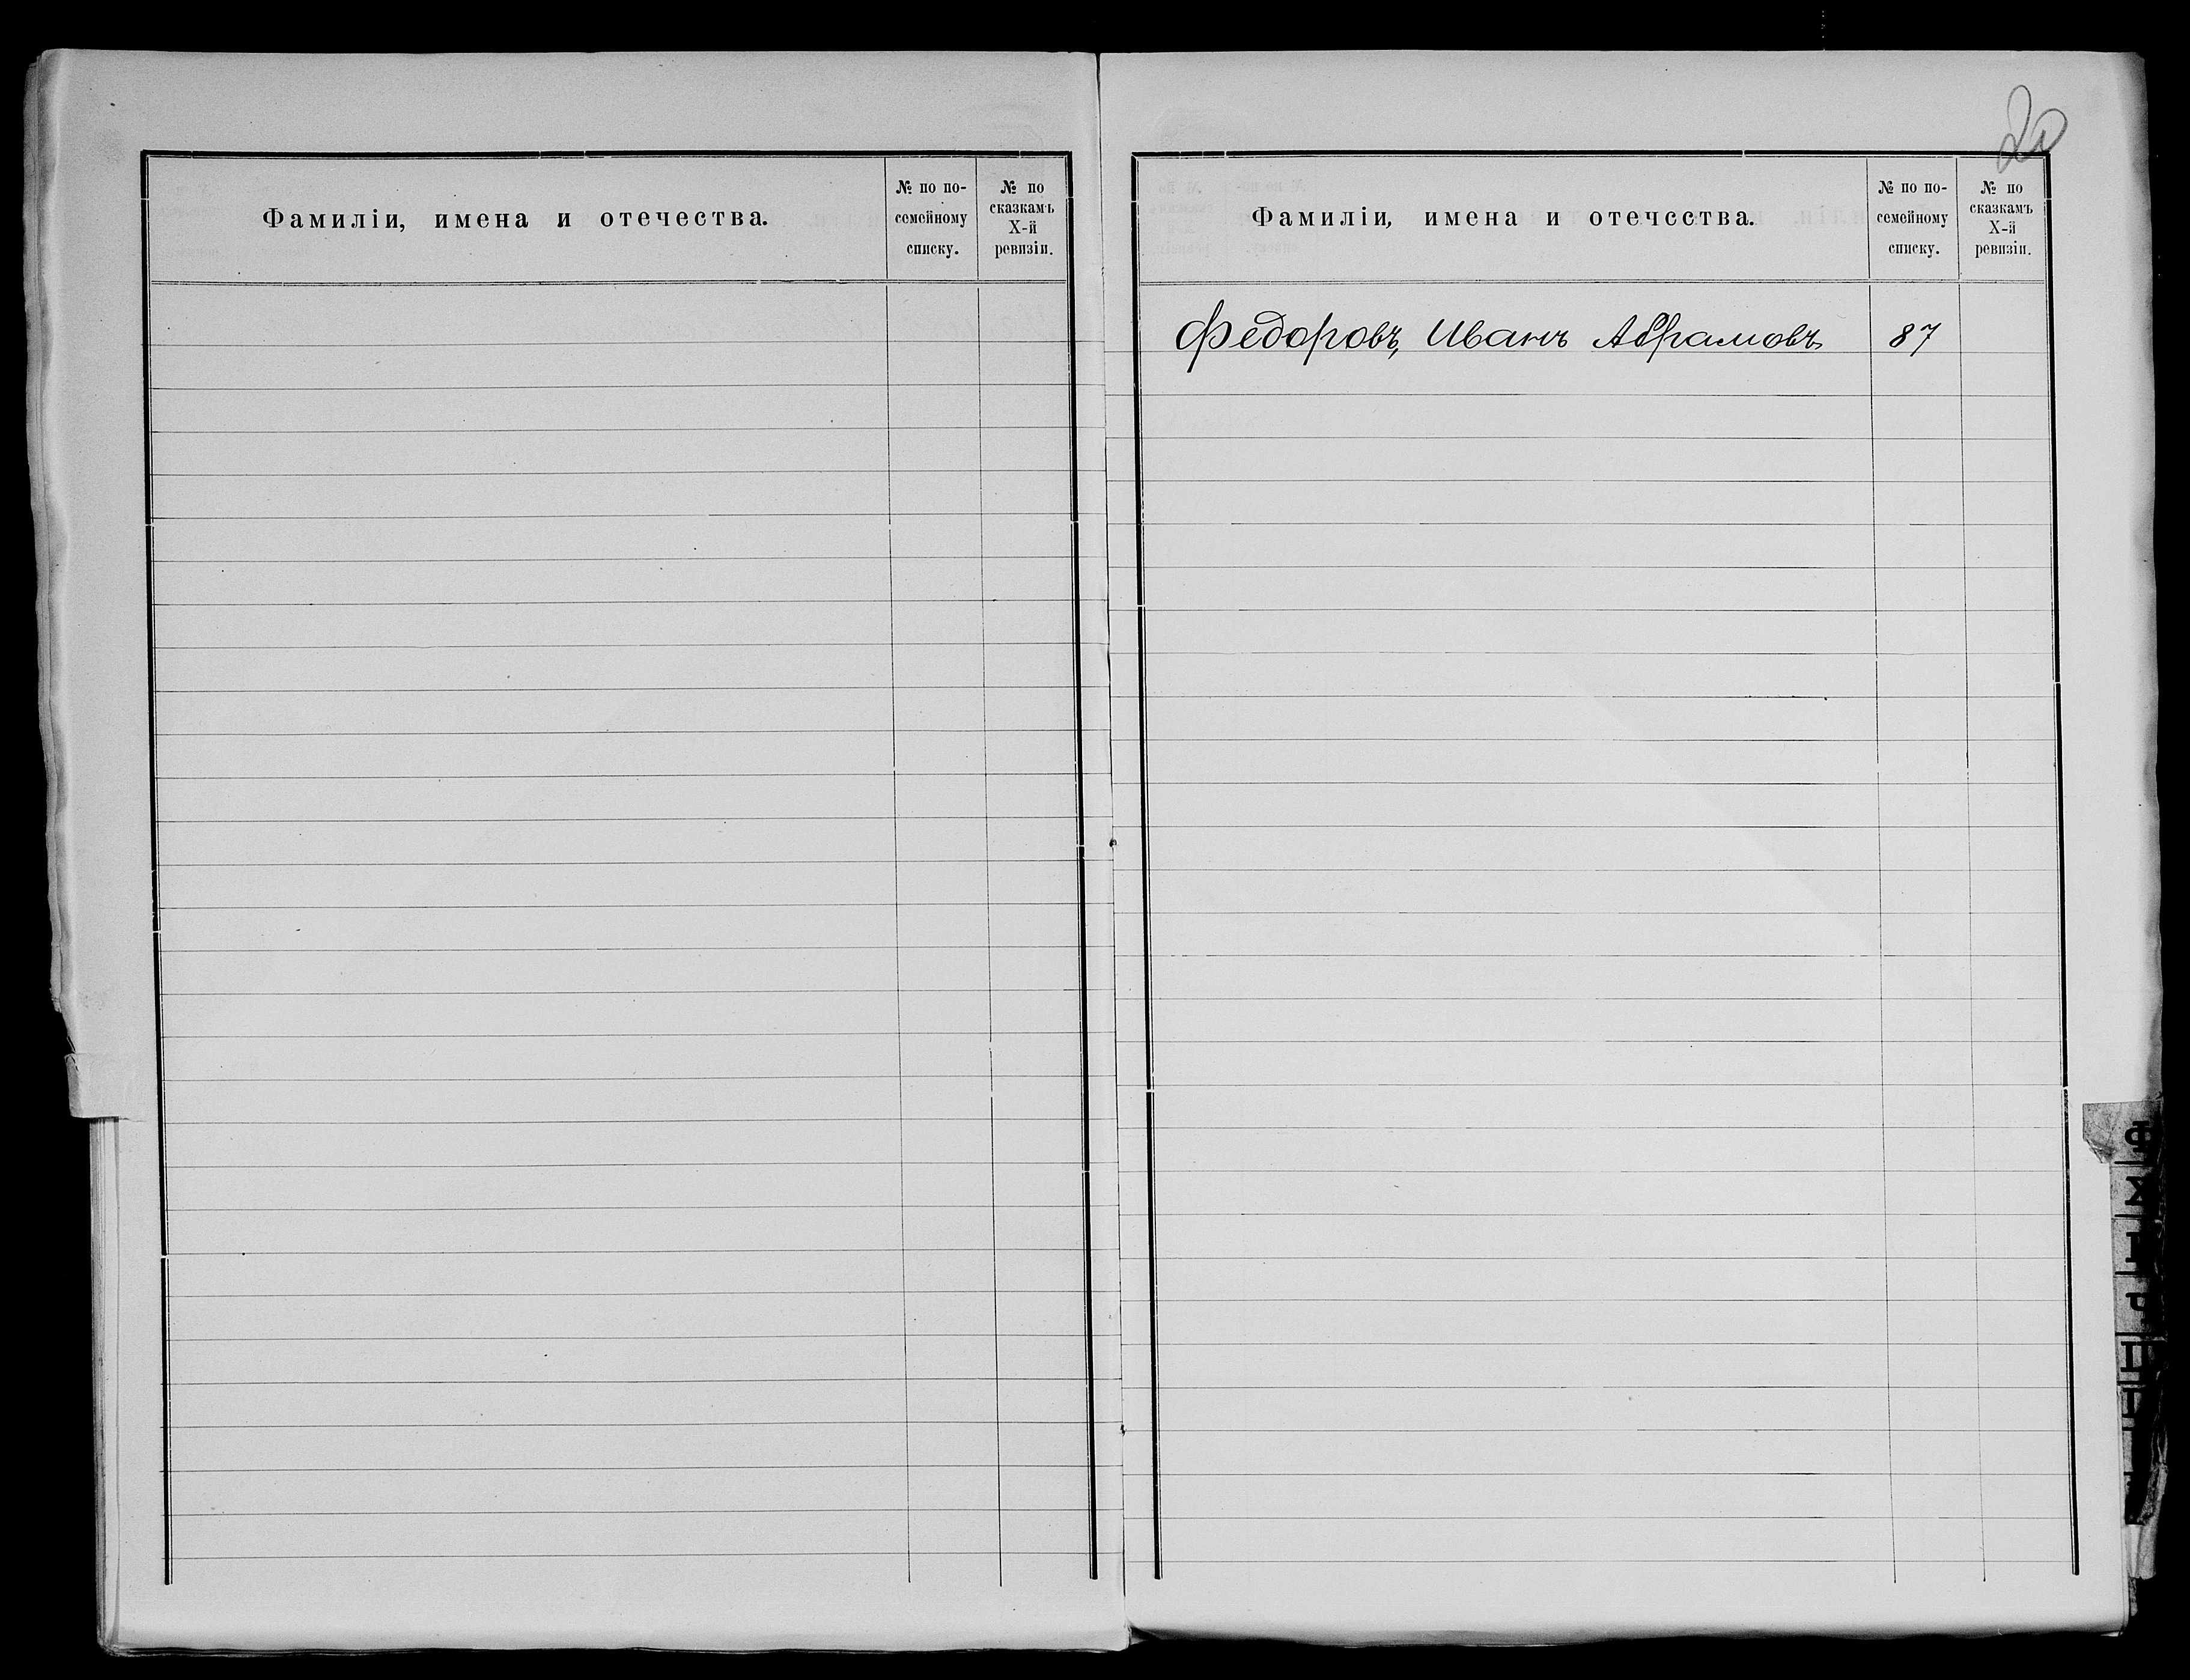 20
Фамиліи, имена и отечества.
№ по по-
семейному
списку.
№ по
сказкамъ
X-й
ревизіи.
Фамиліи, имена и отечества.
№ по по-
семейному
списку.
№ по
сказкамъ
X-й
ревизіи.
Федоровъ, Иванъ Абрамовъ 87